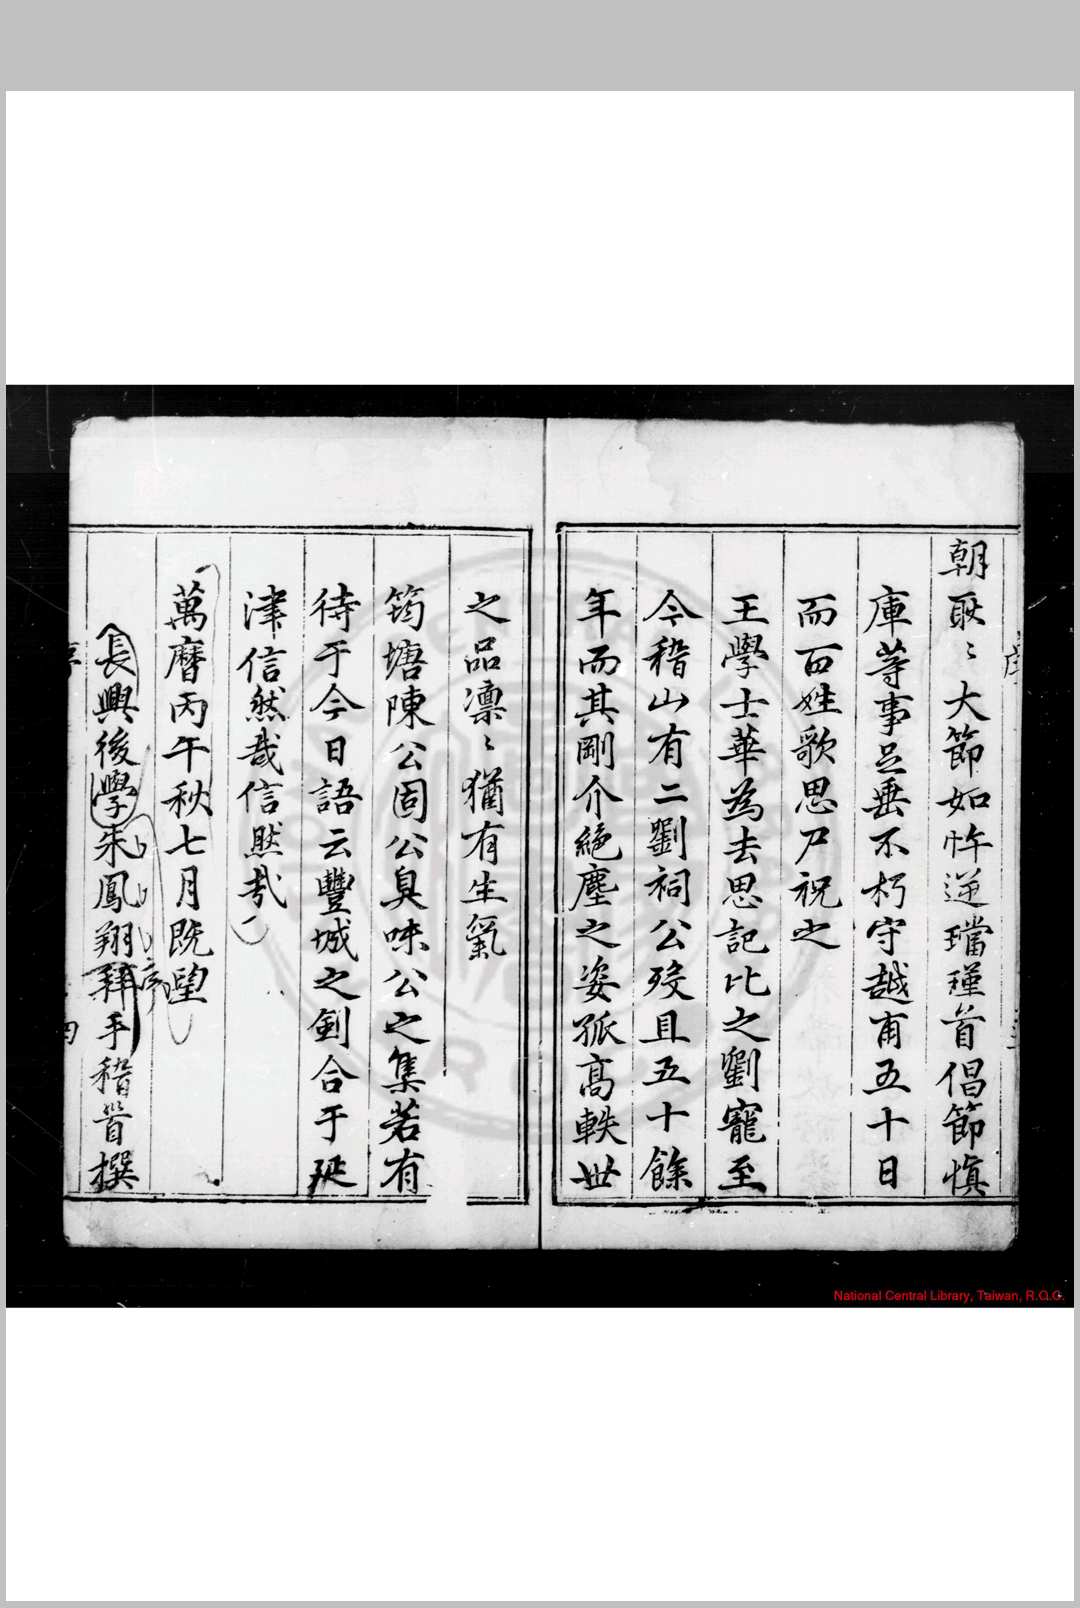 朝耿〻大節如忤逆璫瑾首倡節慎
庫等事足垂不朽守越甫五十日
而百姓歌思尸祝之
王學士華為去思記比之劉寵至
今稽山有二劉祠公歿且五十餘
年而其剛介絕塵之姿孤高軼世
之品凛〻猶有生氣
筠塘陳公固公臭味公之集若有
待于今日語云豐城之劍合于延
津信然哉信然哉
萬曆丙午秋七月既望
長興後學朱鳳翔拜手稽首撰
序
四
National Central Library, Taiwan, R.O.C.